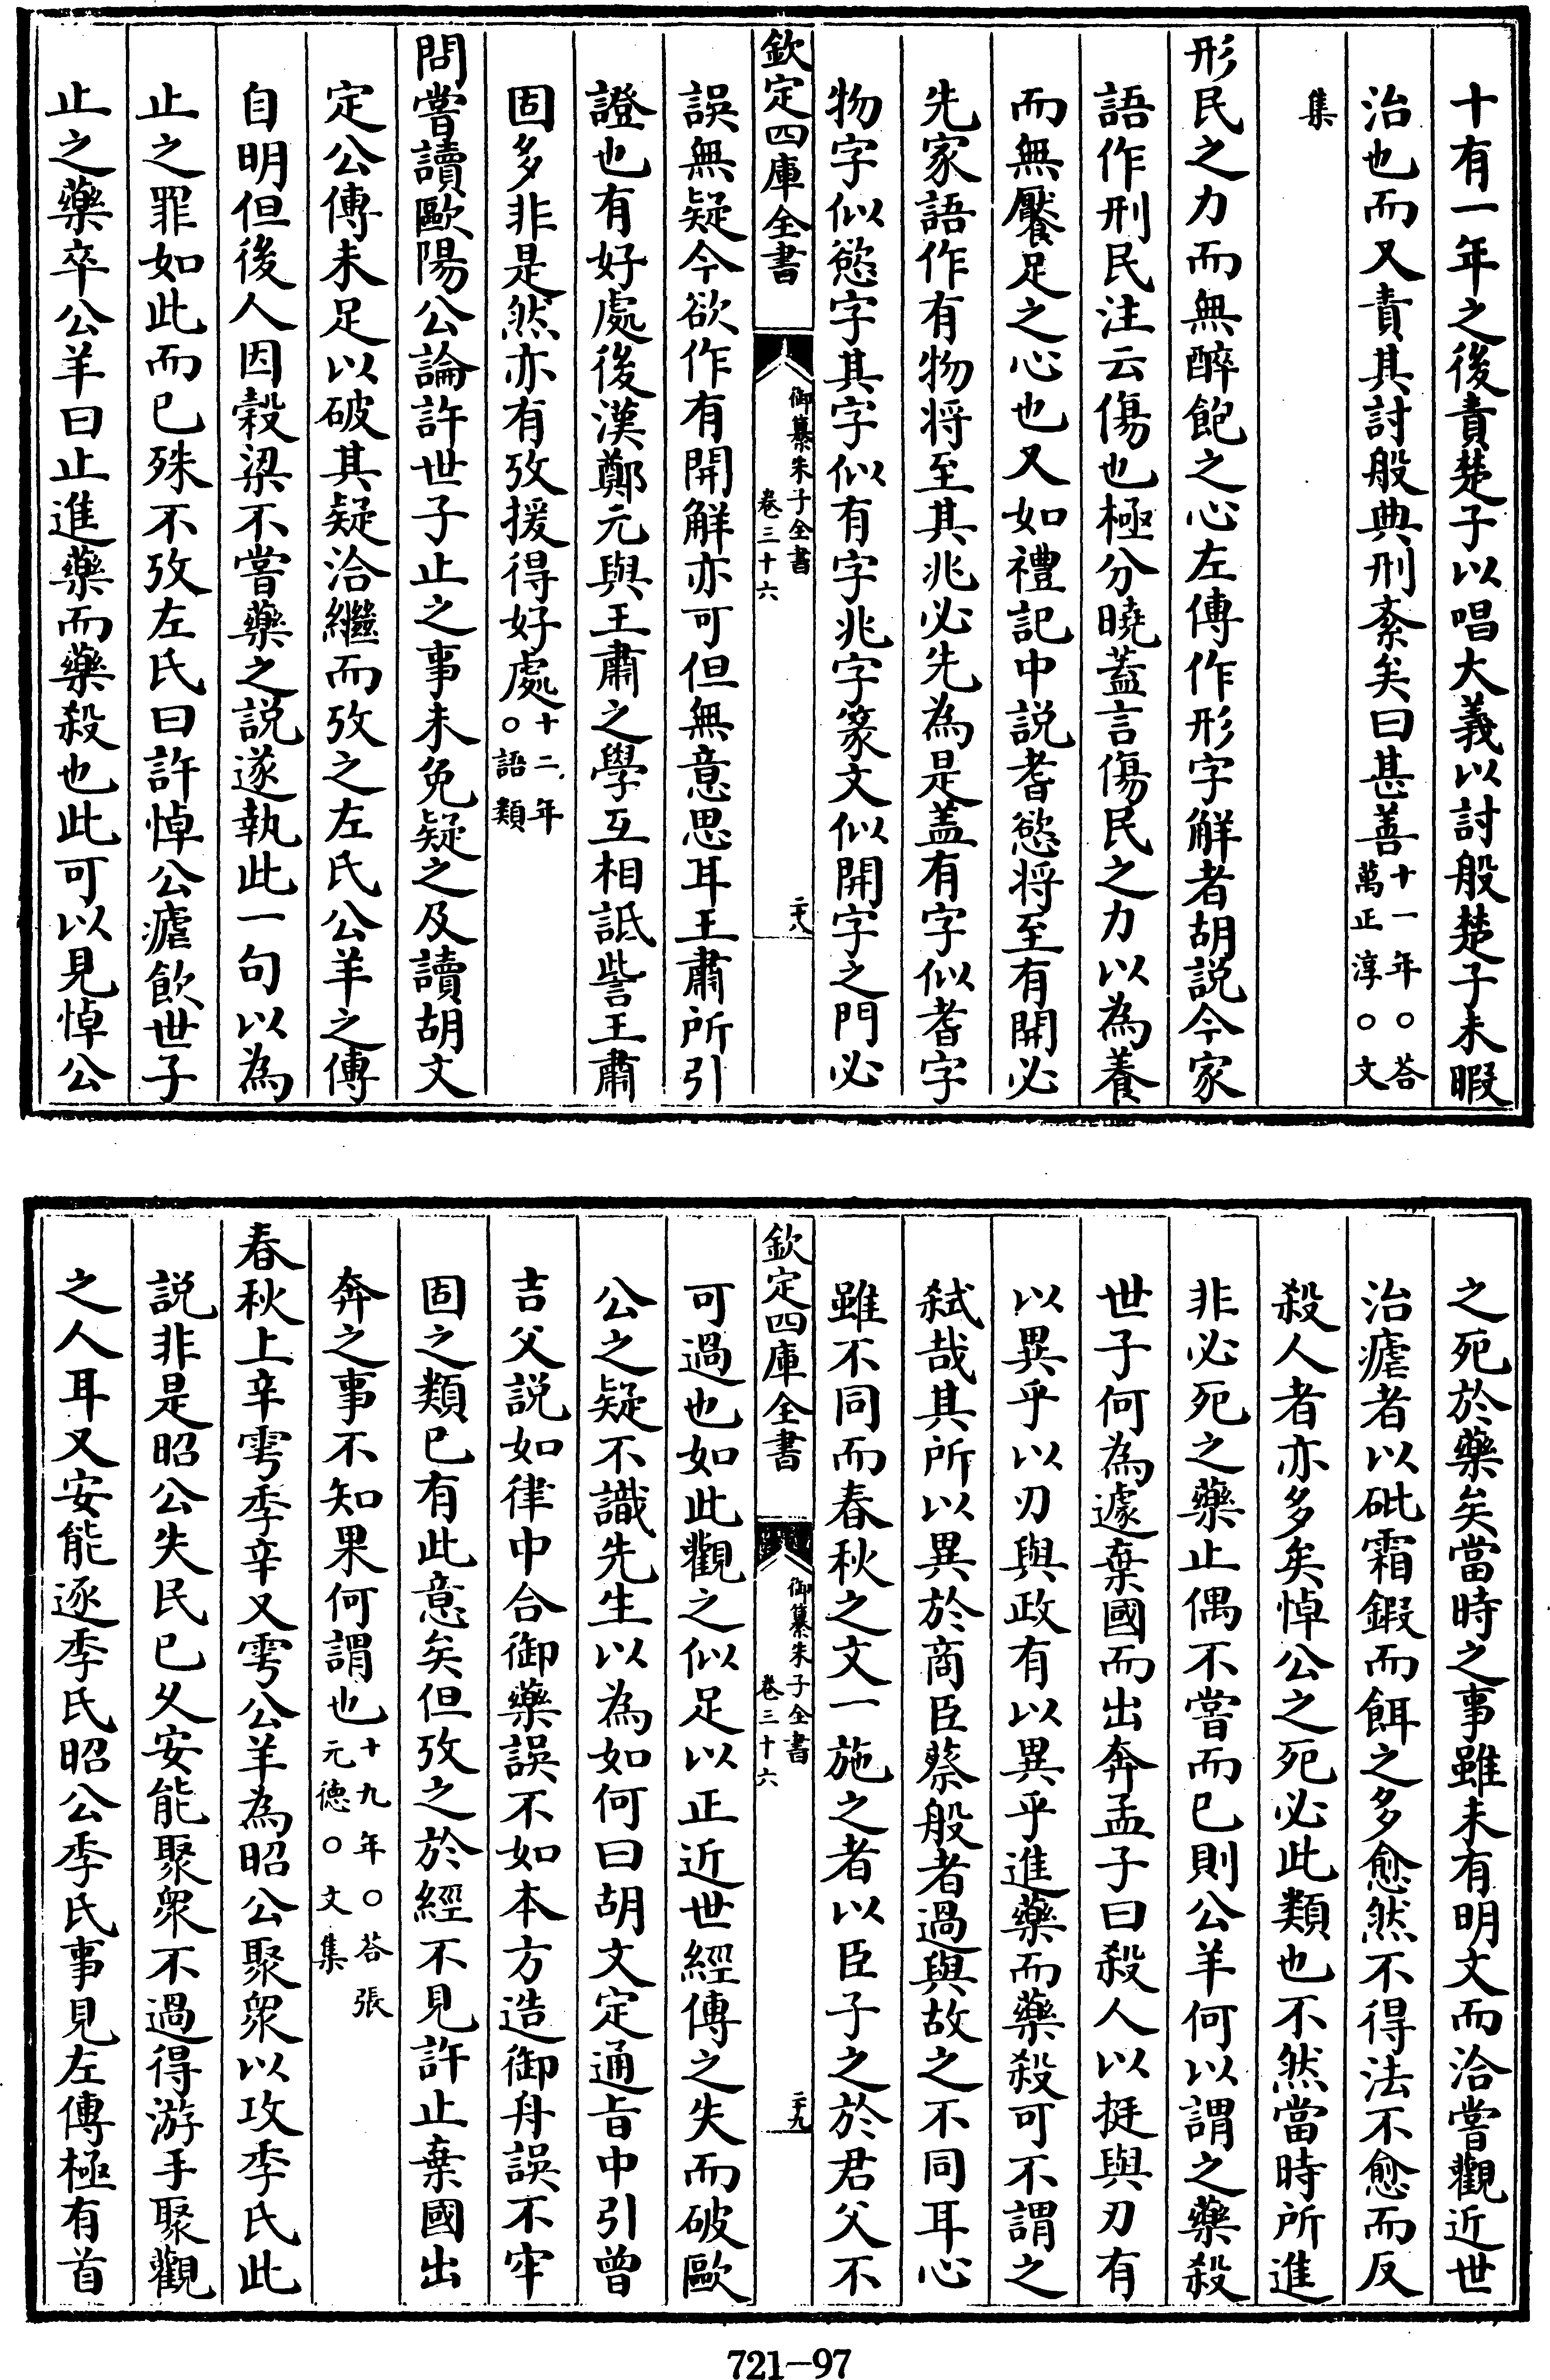 十有一年之後責楚子以唱大義以討般楚子未暇
治也而又責其討般典刑紊矣曰甚善十一年○荅萬正淳○文
集
形民之力而無醉飽之心左傳作形字解者胡説今家
語作刑民注云傷也極分曉蓋言傷民之力以為養
而無饜足之心也又如禮記中説耆慾将至有開必
先家語作有物将至其兆必先為是盖有字似耆字
物字似慾字其字似有字兆字篆文似開字之門必
欽定四庫全書 御纂朱子全書 卷三十六 二十八
誤無疑今欲作有開解亦可但無意思耳王肅所引
證也有好處後漢鄭元與王肅之學互相詆訾王肅
固多非是然亦有攷援得好處十二年○語類
問嘗讀歐陽公論許世子止之事未免疑之及讀胡文
定公傳未足以破其疑洽繼而攷之左氏公羊之傳
自明但後人因榖梁不嘗藥之説遂執此一句以為
止之罪如此而已殊不攷左氏曰許悼公瘧飲世子
止之藥卒公羊曰止進藥而藥殺也此可以見悼公
之死於藥矣當時之事雖未有明文而洽嘗觀近世
治瘧者以砒霜鍛而餌之多愈然不得法不愈而反
殺人者亦多矣悼公之死必此類也不然當時所進
非必死之藥止偶不嘗而已則公羊何以謂之藥殺
世子何為遽棄國而出奔孟子曰殺人以挺與刃有
以異乎以刃與政有以異乎進藥而藥殺可不謂之
弑哉其所以異於商臣蔡般者過與故之不同耳心
雖不同而春秋之文一施之者以臣子之於君父不
欽定四庫全書 御纂朱子全書 卷三十六 二十九
可過也如此觀之似足以正近世經傳之失而破歐
公之疑不識先生以為如何曰胡文定通旨中引曾
吉父説如律中合御藥誤不如本方造御舟誤不牢
固之類已有此意矣但攷之於經不見許止棄國出
奔之事不知果何謂也十九年○荅張元德○文集
春秋上辛雩季辛又雩公羊為昭公聚衆以攻季氏此
説非是昭公失民已乆安能聚衆不過得游手聚觀
之人耳又安能逐季氏昭公季氏事見左傳極有首
721-97